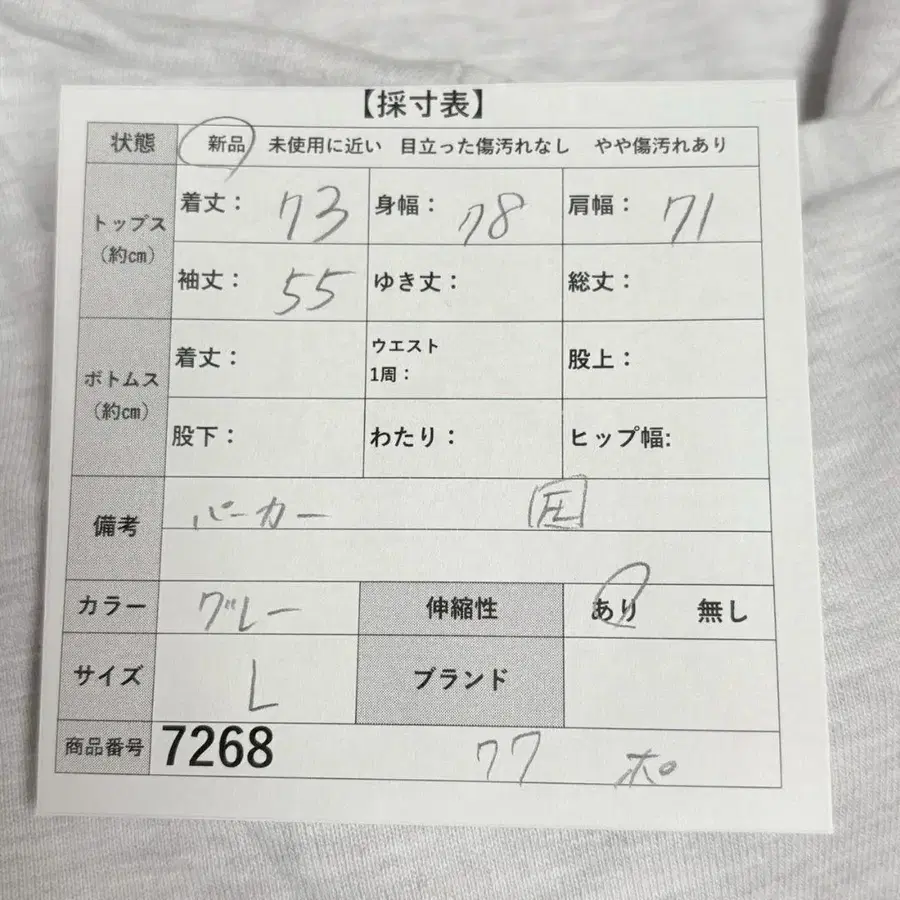 【採寸表】
状態 新品 未使用に近い 目立った傷汚れなし やや傷汚れあり
トップス（約㎝） 着丈： 73 身幅： 78 肩幅： 71
袖丈： 55 ゆき丈： 総丈：
ボトムス（約㎝） 着丈： ウエスト1周： 股上：
股下： わたり： ヒップ幅:
備考 パーカー 圧
カラー グレー 伸縮性 あり 無し
サイズ L ブランド
商品番号 7268 77 ポ